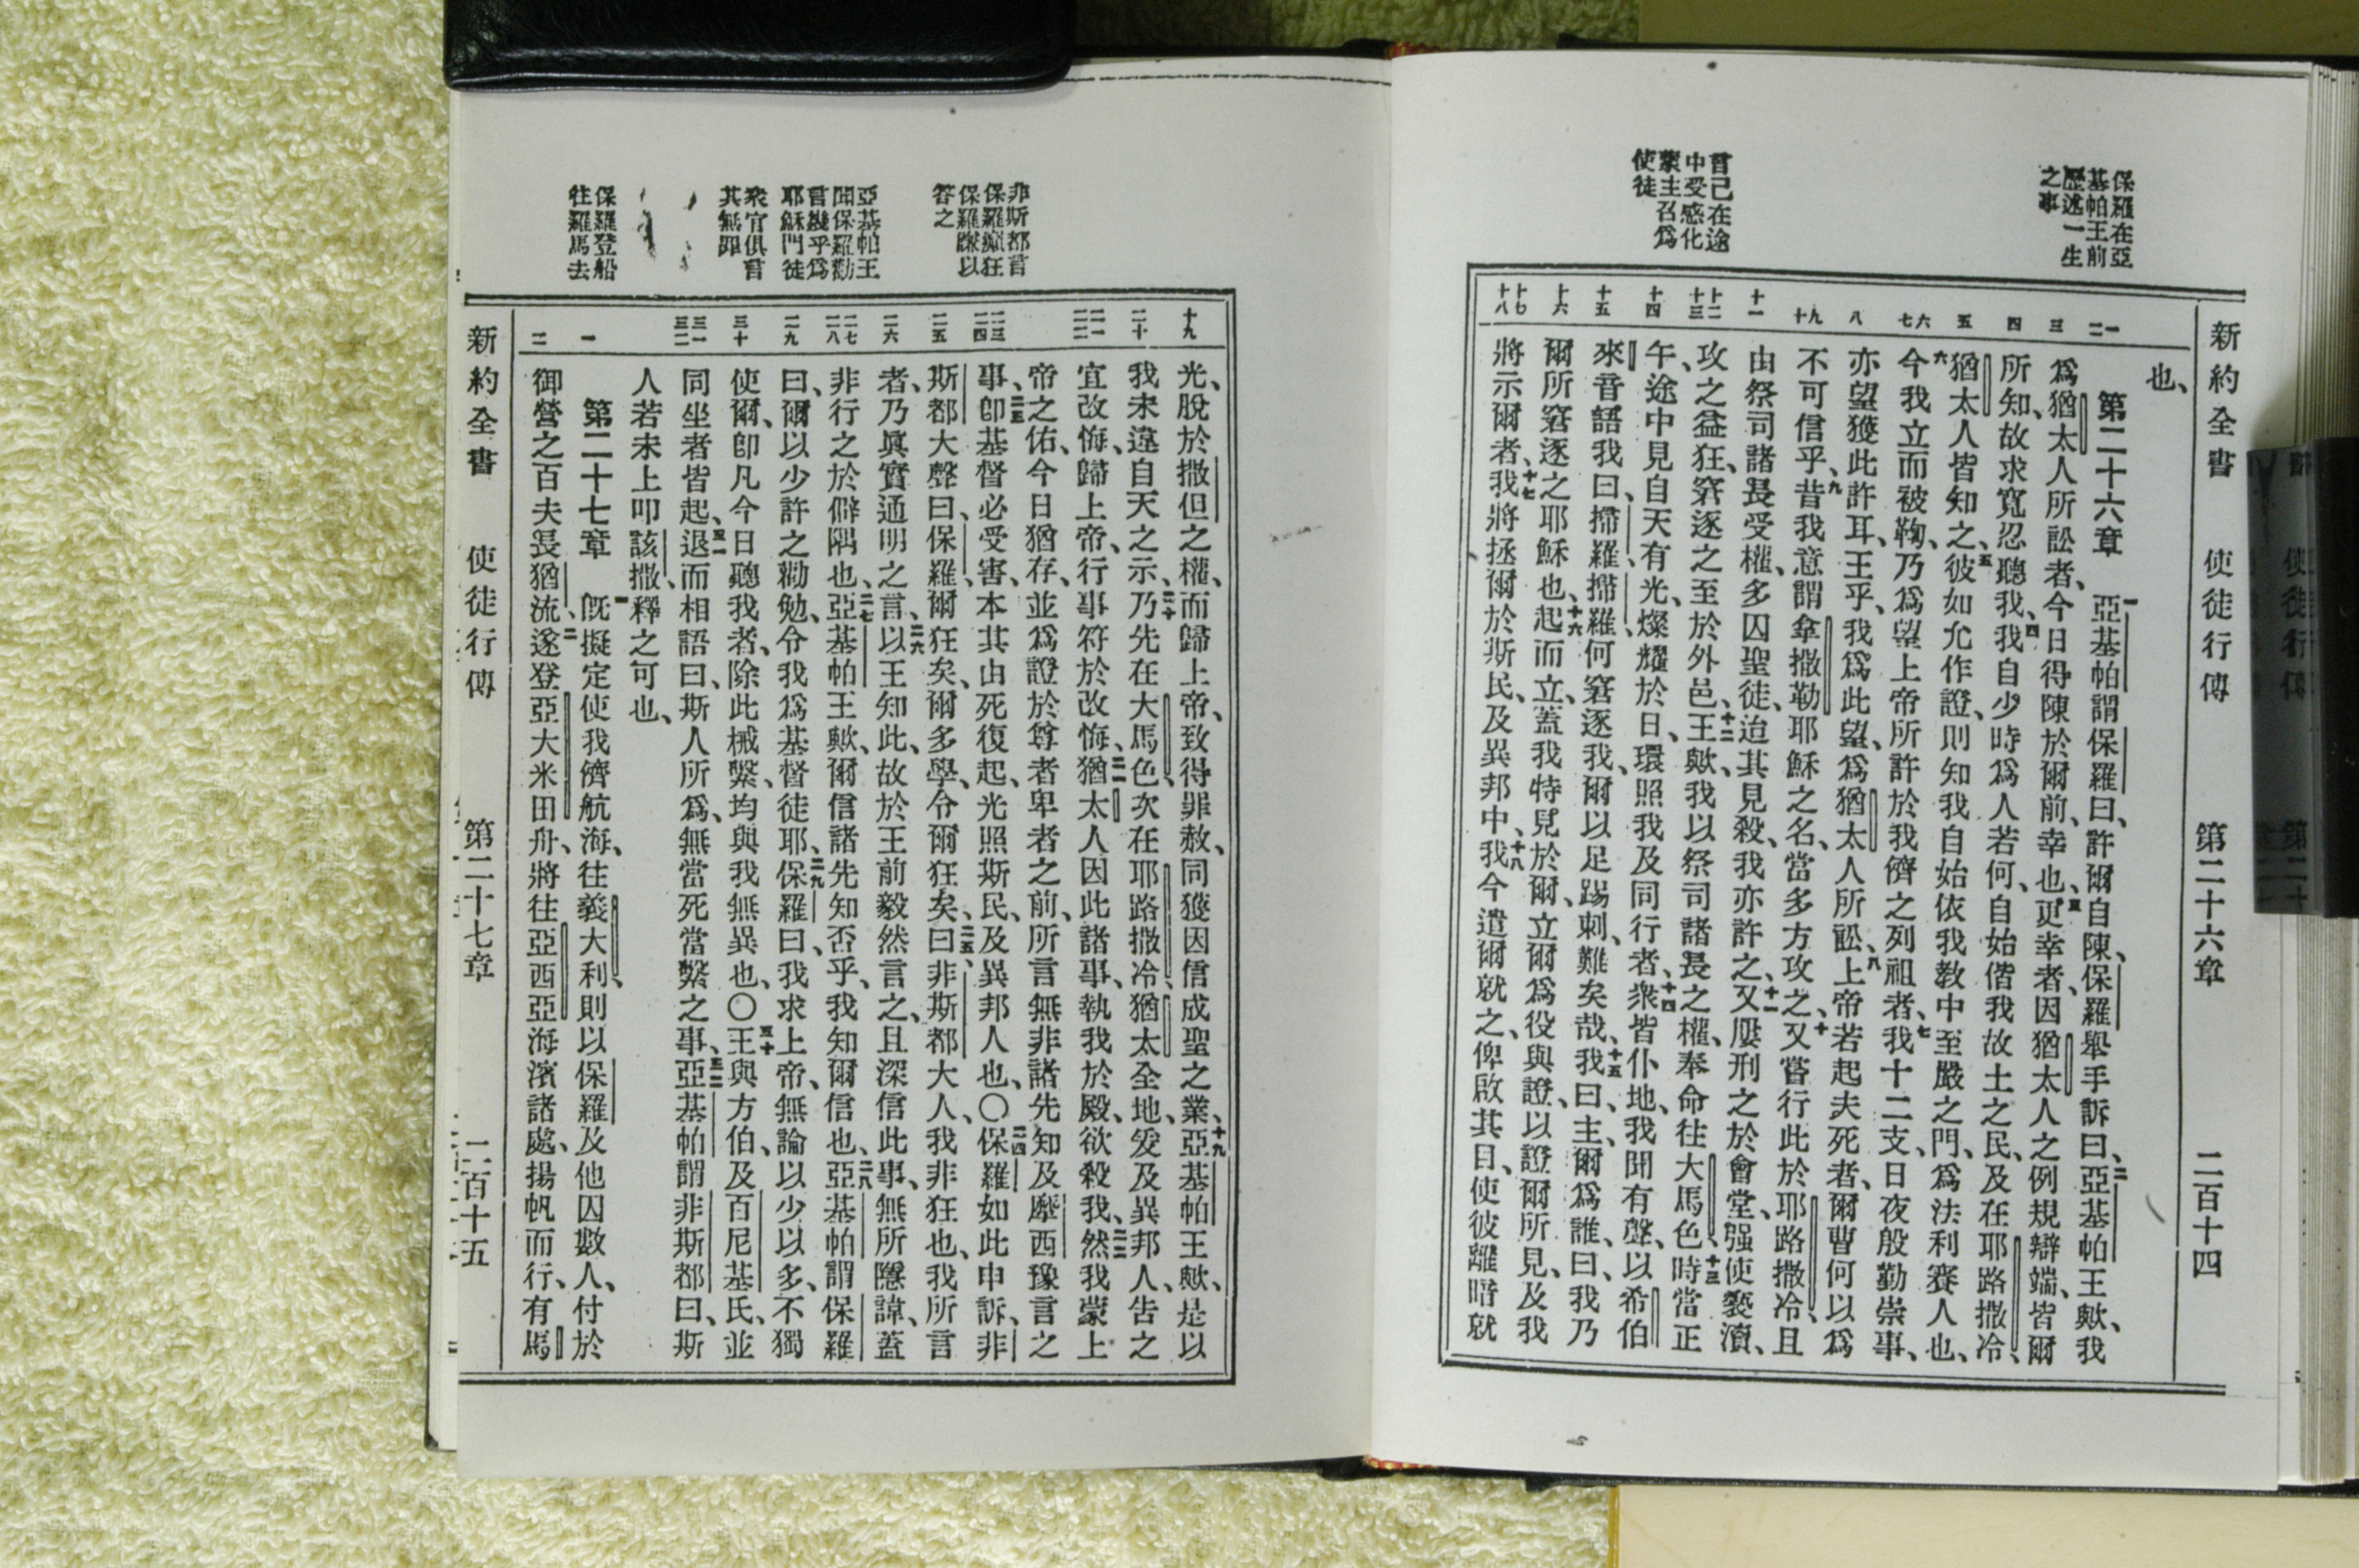 保羅在亞
基帕王前
歷述一生
之事
言己在途
中受感化
蒙主召爲
使徒
新約全書 使徒行傳 第二十六章 二百十四
也、
第二十六章 一亞基帕謂保羅曰、許爾自陳、保羅舉手訴曰、二亞基帕王歟、我
爲猶太人所訟者、今日得陳於爾前、幸也、三更幸者、因猶太人之例規辯端、皆爾
所知、故求寬忍聽我、四我自少時爲人若何、自始偕我故土之民、及在耶路撒冷、
猶太人皆知之、五彼如允作證、則知我自始依我教中至嚴之門、爲法利賽人也、
六今我立而被鞫、乃爲望上帝所許於我儕之列祖者、七我十二支、日夜殷勤崇事、
亦望獲此許耳、王乎、我爲此望、爲猶太人所訟、八上帝若起夫死者、爾曹何以爲
不可信乎、九昔我意謂拿撒勒耶穌之名、當多方攻之、十又嘗行此於耶路撒冷、且
由祭司諸長受權、多囚聖徒、迨其見殺、我亦許之、十一又屢刑之於會堂、强使褻瀆、
攻之益狂、窘逐之至於外邑、十二王歟、我以祭司諸長之權、奉命往大馬色、十三時當正
午、途中見自天有光、燦耀於日、環照我及同行者、十四衆皆仆地、我聞有聲、以希伯
來音語我曰、掃羅、掃羅、何窘逐我、爾以足踢刺、難矣哉、十五我曰、主、爾爲誰、曰、我乃
爾所窘逐之耶穌也、十六起而立、蓋我特見於爾、立爾爲役與證、以證爾所見、及我
將示爾者、十七我將拯爾於斯民、及異邦中、十八我今遣爾就之、俾啟其目、使彼離暗就
非斯都言
保羅癲狂
保羅謙以
答之
亞基帕王
聞保羅勸
言幾乎爲
耶穌門徒
衆官俱言
其無罪
保羅登船
往羅馬去
光、脫於撒但之權、而歸上帝、致得罪赦、同獲因信成聖之業、十九亞基帕王歟、是以
我未違自天之示、二十乃先在大馬色、次在耶路撒冷、猶太全地、爰及異邦人、吿之
宜改悔、歸上帝、行事符於改悔、二一猶太人因此諸事、執我於殿、欲殺我、二二然我蒙上
帝之佑、今日猶存、並爲證於尊者卑者之前、所言無非諸先知及摩西豫言之
事、二三卽基督必受害、本其由死復起、光照斯民、及異邦人也、〇二四保羅如此申訴、非
斯都大聲曰、保羅、爾狂矣、爾多學、令爾狂矣、二五曰、非斯都大人、我非狂也、我所言
者、乃眞實通明之言、二六以王知此、故於王前毅然言之、且深信此事、無所隱諱、蓋
非行之於僻隅也、二七亞基帕王歟、爾信諸先知否乎、我知爾信也、二八亞基帕謂保羅
曰、爾以少許之勸勉、令我爲基督徒耶、二九保羅曰、我求上帝、無論以少以多、不獨
使爾、卽凡今日聽我者、除此械繫、均與我無異也、〇三十王與方伯、及百尼基氏、並
同坐者皆起、三一退而相語曰、斯人所爲、無當死當繫之事、三二亞基帕謂非斯都曰、斯
人若未上叩該撒、釋之可也、
第二十七章 一旣擬定使我儕航海、往義大利、則以保羅及他囚數人、付於
御營之百夫長猶流、二遂登亞大米田舟、將往亞西亞海濱諸處、揚帆而行、有馬
新約全書 使徒行傳 第二十七章 二百十五